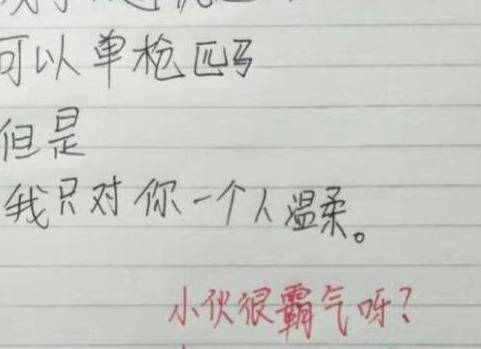 可以单枪匹马
但是
我只对你一个人温柔。
小伙很霸气呀?